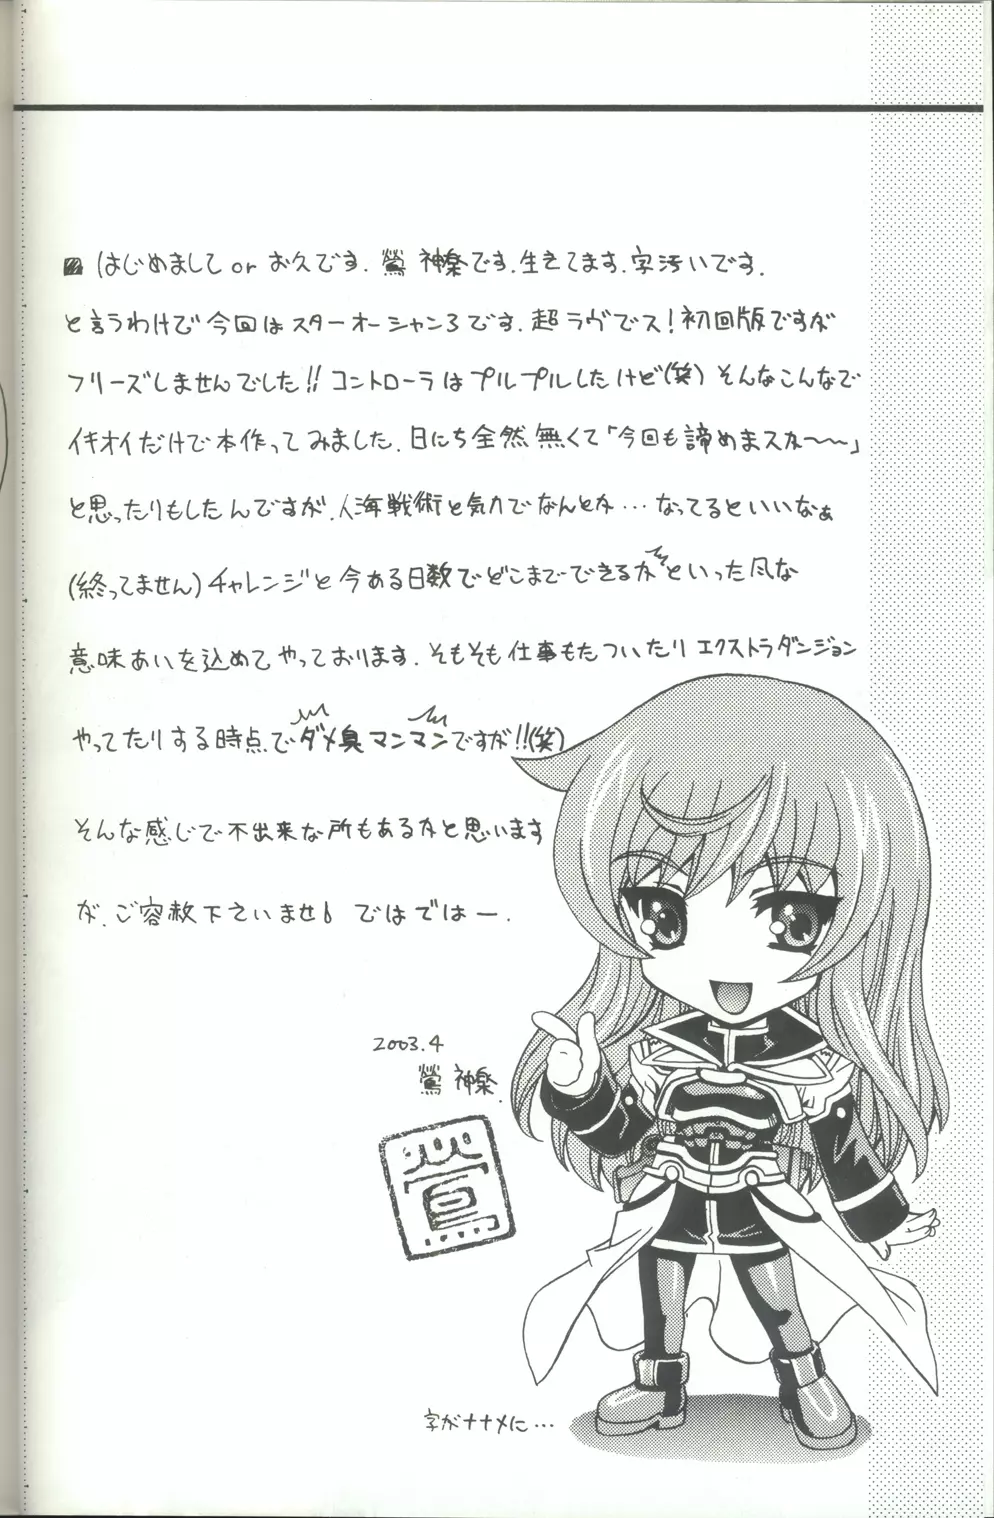 はじめまして or お久です. 鶯 神楽です. 生きてます. 字汚いです.
と言うわけで今回はスターオーシャン3です. 超ラヴでス！初回版ですが
フリーズしませんでした!! コントローラはプルプルしたけど(笑) そんなこんなで
イキオイだけで本作ってみました. 日にち全然無くて「今回も諦めまスか〜〜」
と思ったりもしたんですが. 人海戦術と気力でなんとか…なってるといいなぁ
(終ってません)チャレンジと今ある日数でどこまでできるかといった風な
意味あいを込めてやっております. そもそも仕事もたついたりエクストラダンジョン
やってたりする時点でダメ臭マンマンですが!!(笑)
そんな感じで不出来な所もあるかと思います
が. ご容赦下さいませ。ではではー.
2003.4
鶯 神楽.
鶯
字がナナメに…